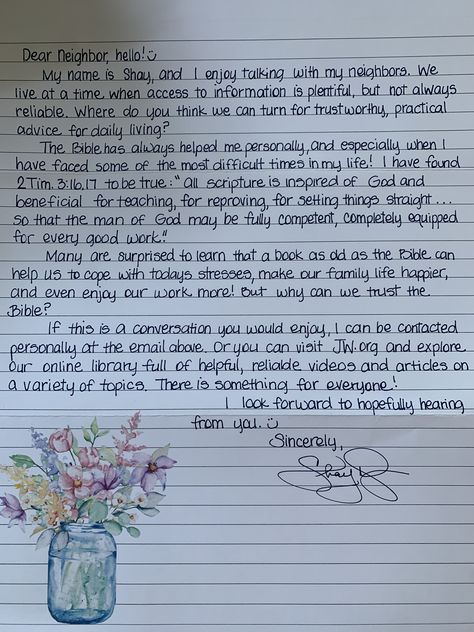 Dear Neighbor, hello! :)
My name is Shay, and I enjoy talking with my neighbors. We
live at a time when access to information is plentiful, but not always
reliable. Where do you think we can turn for trustworthy, practical
advice for daily living?
The Bible has always helped me personally, and especially when I
have faced some of the most difficult times in my life! I have found
2 Tim. 3:16,17 to be true: "all scripture is inspired of God and
beneficial for teaching, for reproving, for setting things straight...
so that the man of God may be fully competent, completely equipped
for every good work."
Many are surprised to learn that a book as old as the Bible can
help us to cope with todays stresses, make our family life happier,
and even enjoy our work more! But why can we trust the
Bible?
If this is a conversation you would enjoy, I can be contacted
personally at the email above. Or you can visit JW.org and explore
our online library full of helpful, reliable videos and articles on
a variety of topics. There is something for everyone!
I look forward to hopefully hearing
from you. :)
Sincerely,